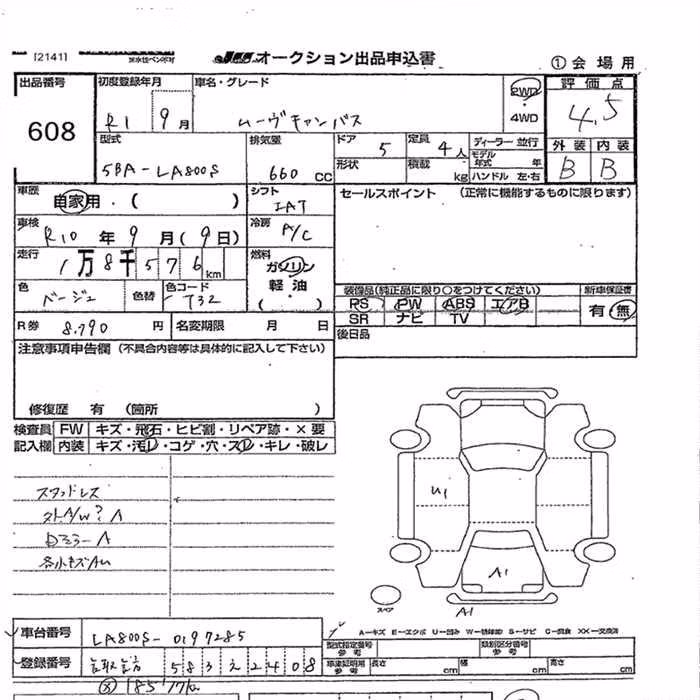 [2141]
オークション出品申込書
①会場用
出品番号
608
初度登録年月
R1 9月
車名・グレード
ムーヴキャンバス
2WD
・
4WD
評価点
4.5
型式
5BA-LA800S
排気量
660 CC
ドア
5
定員
4人
形状
積載
kg
ディーラー 並行
モデル年式 年
ハンドル 左・右
外装 内装
B B
車歴
自家用・( )
シフト
IAT
セールスポイント (正常に機能するものに限ります)
車検
R10 年 9 月 (9日)
冷房
A/C
走行
1万8千576km
燃料
ガソリン
軽油
( ・ )
色
ベージュ
色替
色コード
T32
装備品(純正品に限り○をつけてください)
PS PW ABS エアB
SR ナビ TV
新車保証書
有・無
R券 8,790 円
名変期限 月 日
後日品
注意事項申告欄 (不具合内容等は具体的に記入して下さい)
修復歴 有 (箇所 )
検査員記入欄
FW キズ・飛石・ヒビ割・リペア跡・×要
内装 キズ・汚レ・コゲ・穴・スレ・キレ・破レ
スタッドレス
外A/W? A
Dミラー A
各小キズAU
U1
A1
A1
スペア
車台番号
LA800S-0197285
登録番号
583 え 2408
型式指定番号 参考
類別区分番号 参考
車庫証明用 参考
長さ cm
幅 cm
高さ cm